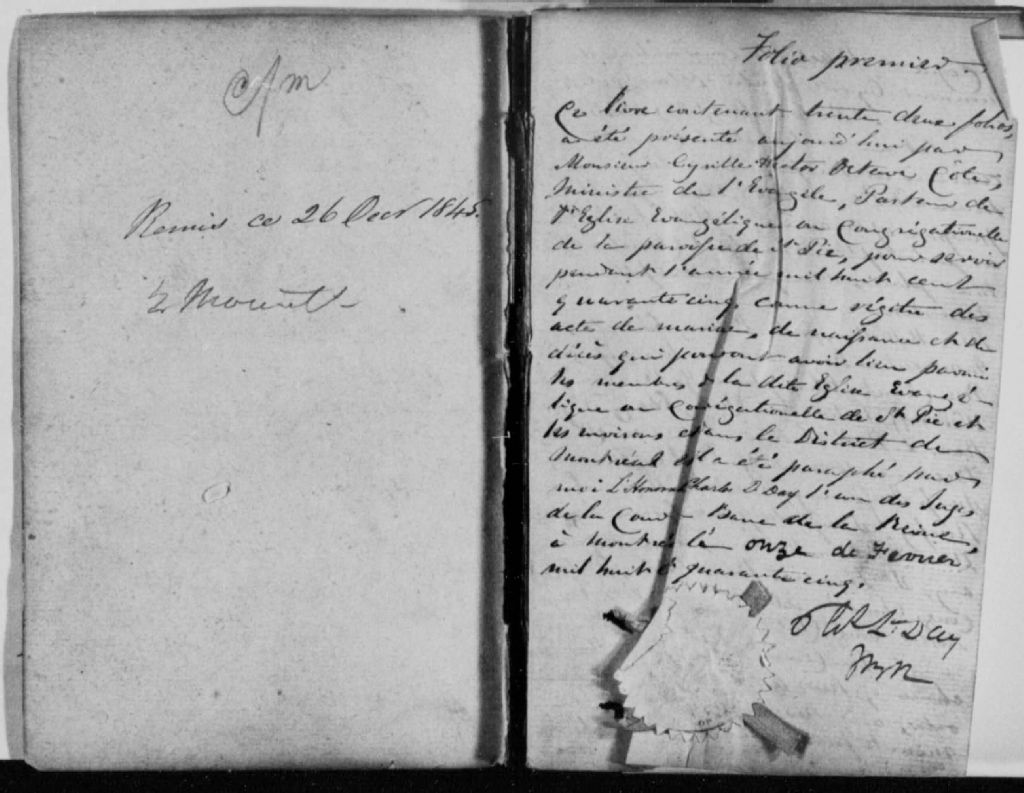 Am
Remis ce 26 Decr 1845.
Folio premier
Ce livre contenant trente deux folios,
a été présenté aujourd'hui par
Monsieur Cyrille Hector Octave Côté,
Ministre de l'Evangile, Pasteur de
l'Eglise Evangélique ou Congrégationelle
de la paroisse de St Pie, pour servir
pendant l'année mil huit cent
quarante cinq comme régitre des
acte de mariae, de naissance et de
décès qui pouront avoir lieu parmi
les membres de la dite Eglise Evangé-
lique ou Congrégationelle de St Pie et
les environs dans le District de
Montréal et a été paraphé par
moi L'Honorable Charles D Day l'un des Juges
de la Cour Banc de la Reine,
à Montreal le onze de Fevrier
mil huit ct quarante cinq.
Day